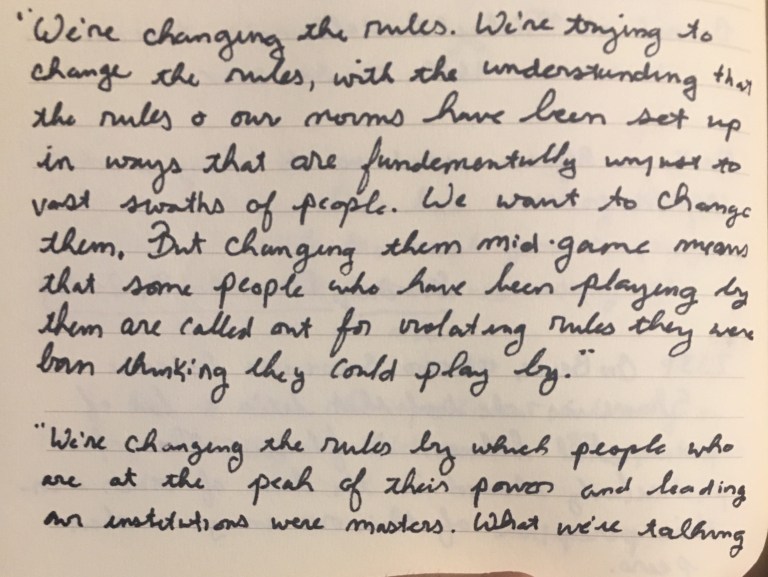 "We're changing the rules. We're trying to
change the rules, with the understanding that
the rules & our norms have been set up
in ways that are fundementally unjust to
vast swaths of people. We want to change
them. But changing them mid-game means
that some people who have been playing by
them are called out for violating rules they were
born thinking they could play by."
"We're changing the rules by which people who
are at the peak of their power and leading
our institutions were masters. What we're talking